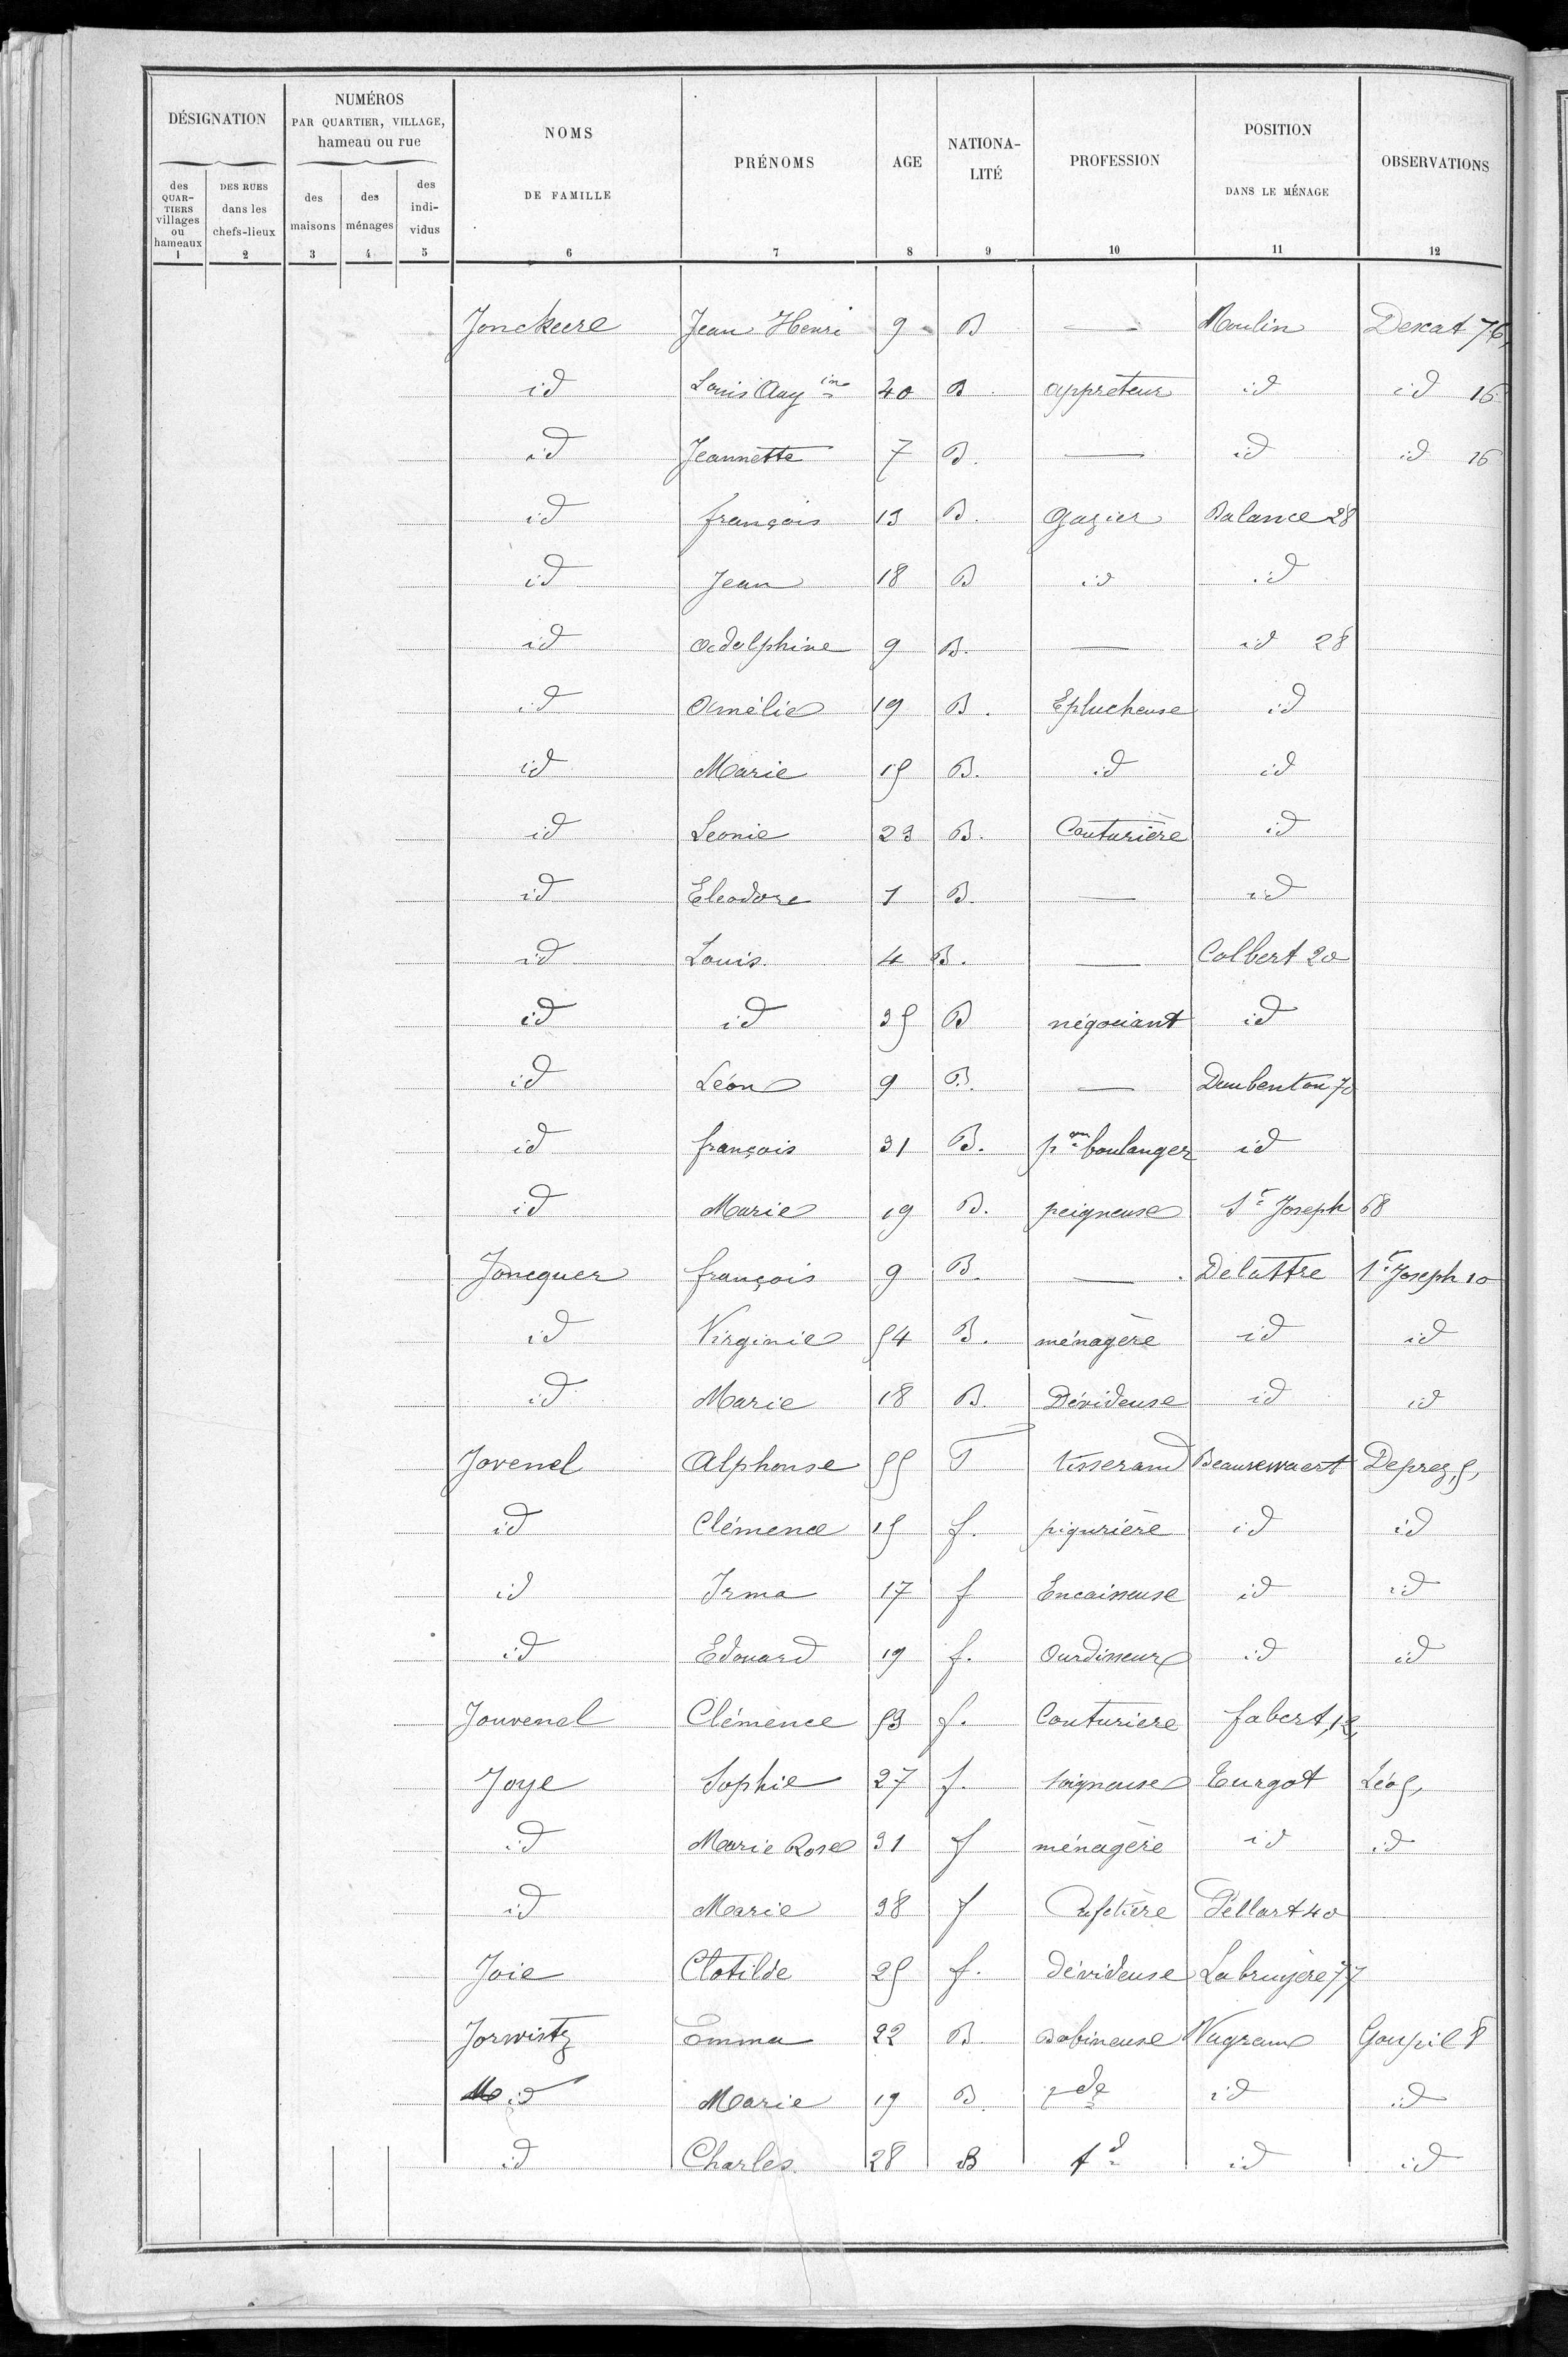 DÉSIGNATION | NUMÉROS PAR QUARTIER, VILLAGE, hameau ou rue | NOMS DE FAMILLE | PRÉNOMS | AGE | NATIONA-LITÉ | PROFESSION | POSITION DANS LE MÉNAGE | OBSERVATIONS
des QUAR-TIERS villages ou hameaux | DES RUES dans les chefs-lieux | des maisons | des ménages | des indi-vidus
1 | 2 | 3 | 4 | 5 | 6 | 7 | 8 | 9 | 10 | 11 | 12
Jonckeere | Jean Henri | 9 | B | — | Moulin | Descat 76,
id | Louis Aug in | 40 | B | appreteur | id | id 16
id | Jeannette | 7 | B. | — | id | id 16
id | françois | 13 | B. | Gazier | Balance 28
id | Jean | 18 | B | id | id
id | adolphine | 9 | B. | — | id 28
id | Amélie | 19 | B. | Eplucheuse | id
id | Marie | 15 | B. | id | id
id | Leonie | 23 | B. | Couturière | id
id | Eleodore | 1 | B. | — | id
id | Louis | 4 | B. | — | Colbert 20
id | id | 35 | B | négociant | id
id | Léon | 9 | B. | — | Daubenton 70
id | françois | 31 | B. | boulanger | id
id | Marie | 19 | B. | peigneuse | St Joseph 68
Joncguer | françois | 9 | B. | — | Delattre | St Joseph 10
id | Virginie | 54 | B. | ménagère | id | id
id | Marie | 18 | B. | Dévideuse | id | id
Jovenel | Alphonse | 55 | f | tisserand | Beaurewaert | Deprez, 5,
id | Clémence | 15 | f. | piqurière | id | id
id | Irma | 17 | f | Encaisseuse | id | id
id | Edouard | 19 | f. | Ourdisseur | id | id
Jouvenel | Clémence | 53 | f. | Couturiere | fabert, 12,
Joye | Sophie | 27 | f. | soigneuse | Turgot | Léo 5,
id | Marie Rose | 31 | f | ménagère | id | id
id | Marie | 38 | f | Cafetière | Pellart 40
Joie | Clotilde | 25 | f. | dévideuse | Labruyère 77
Jorwistz | Emma | 22 | B | Bobineuse | Wagram | Goupil 8
id | Marie | 19 | B. | | id | id
id | Charles | 28 | B | | id | id